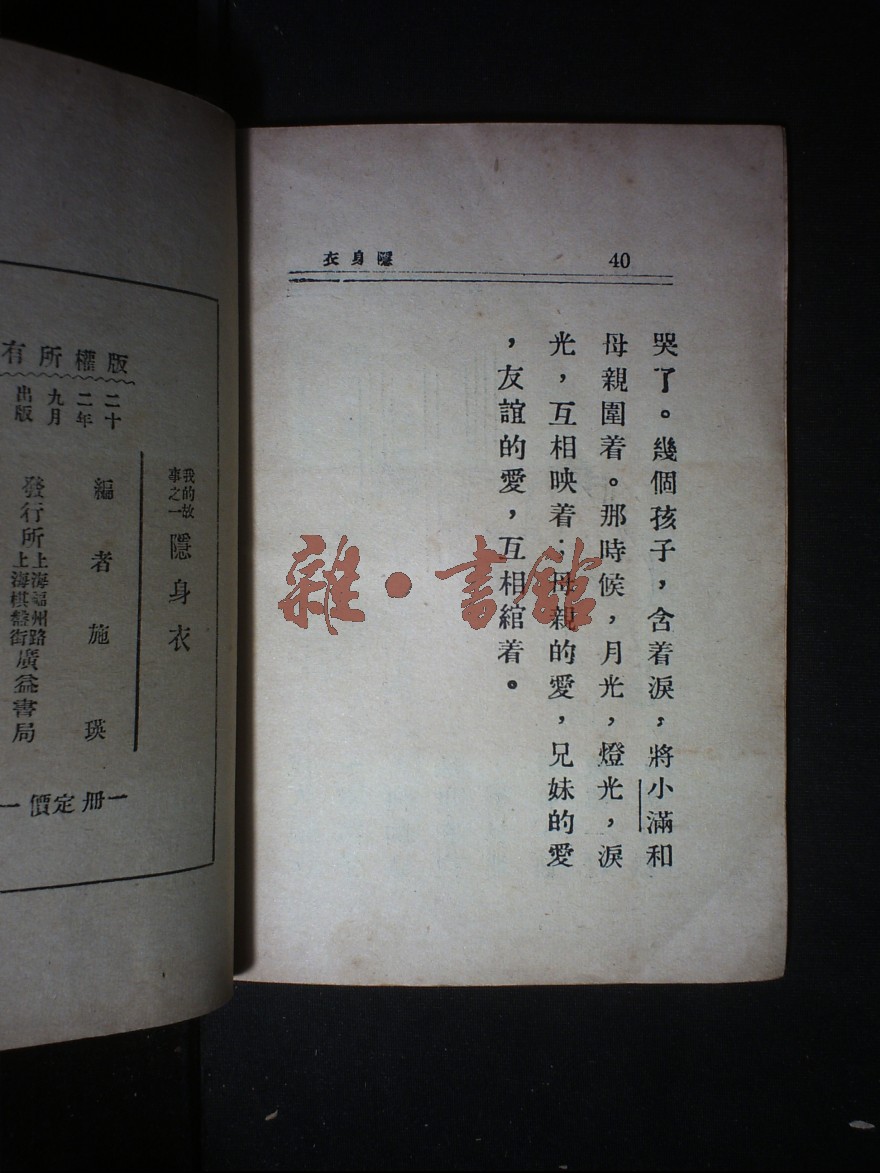 40
隱身衣
哭了。幾個孩子，含着淚，將小滿和
母親圍着。那時候，月光，燈光，淚
光，互相映着；母親的愛，兄妹的愛
，友誼的愛，互相綰着。
雜·書館
版權所有
二十二年九月出版
我的故事之一
隱身衣
編者施瑛
發行所
上海福州路
上海棋盤街
廣益書局
一册定價一